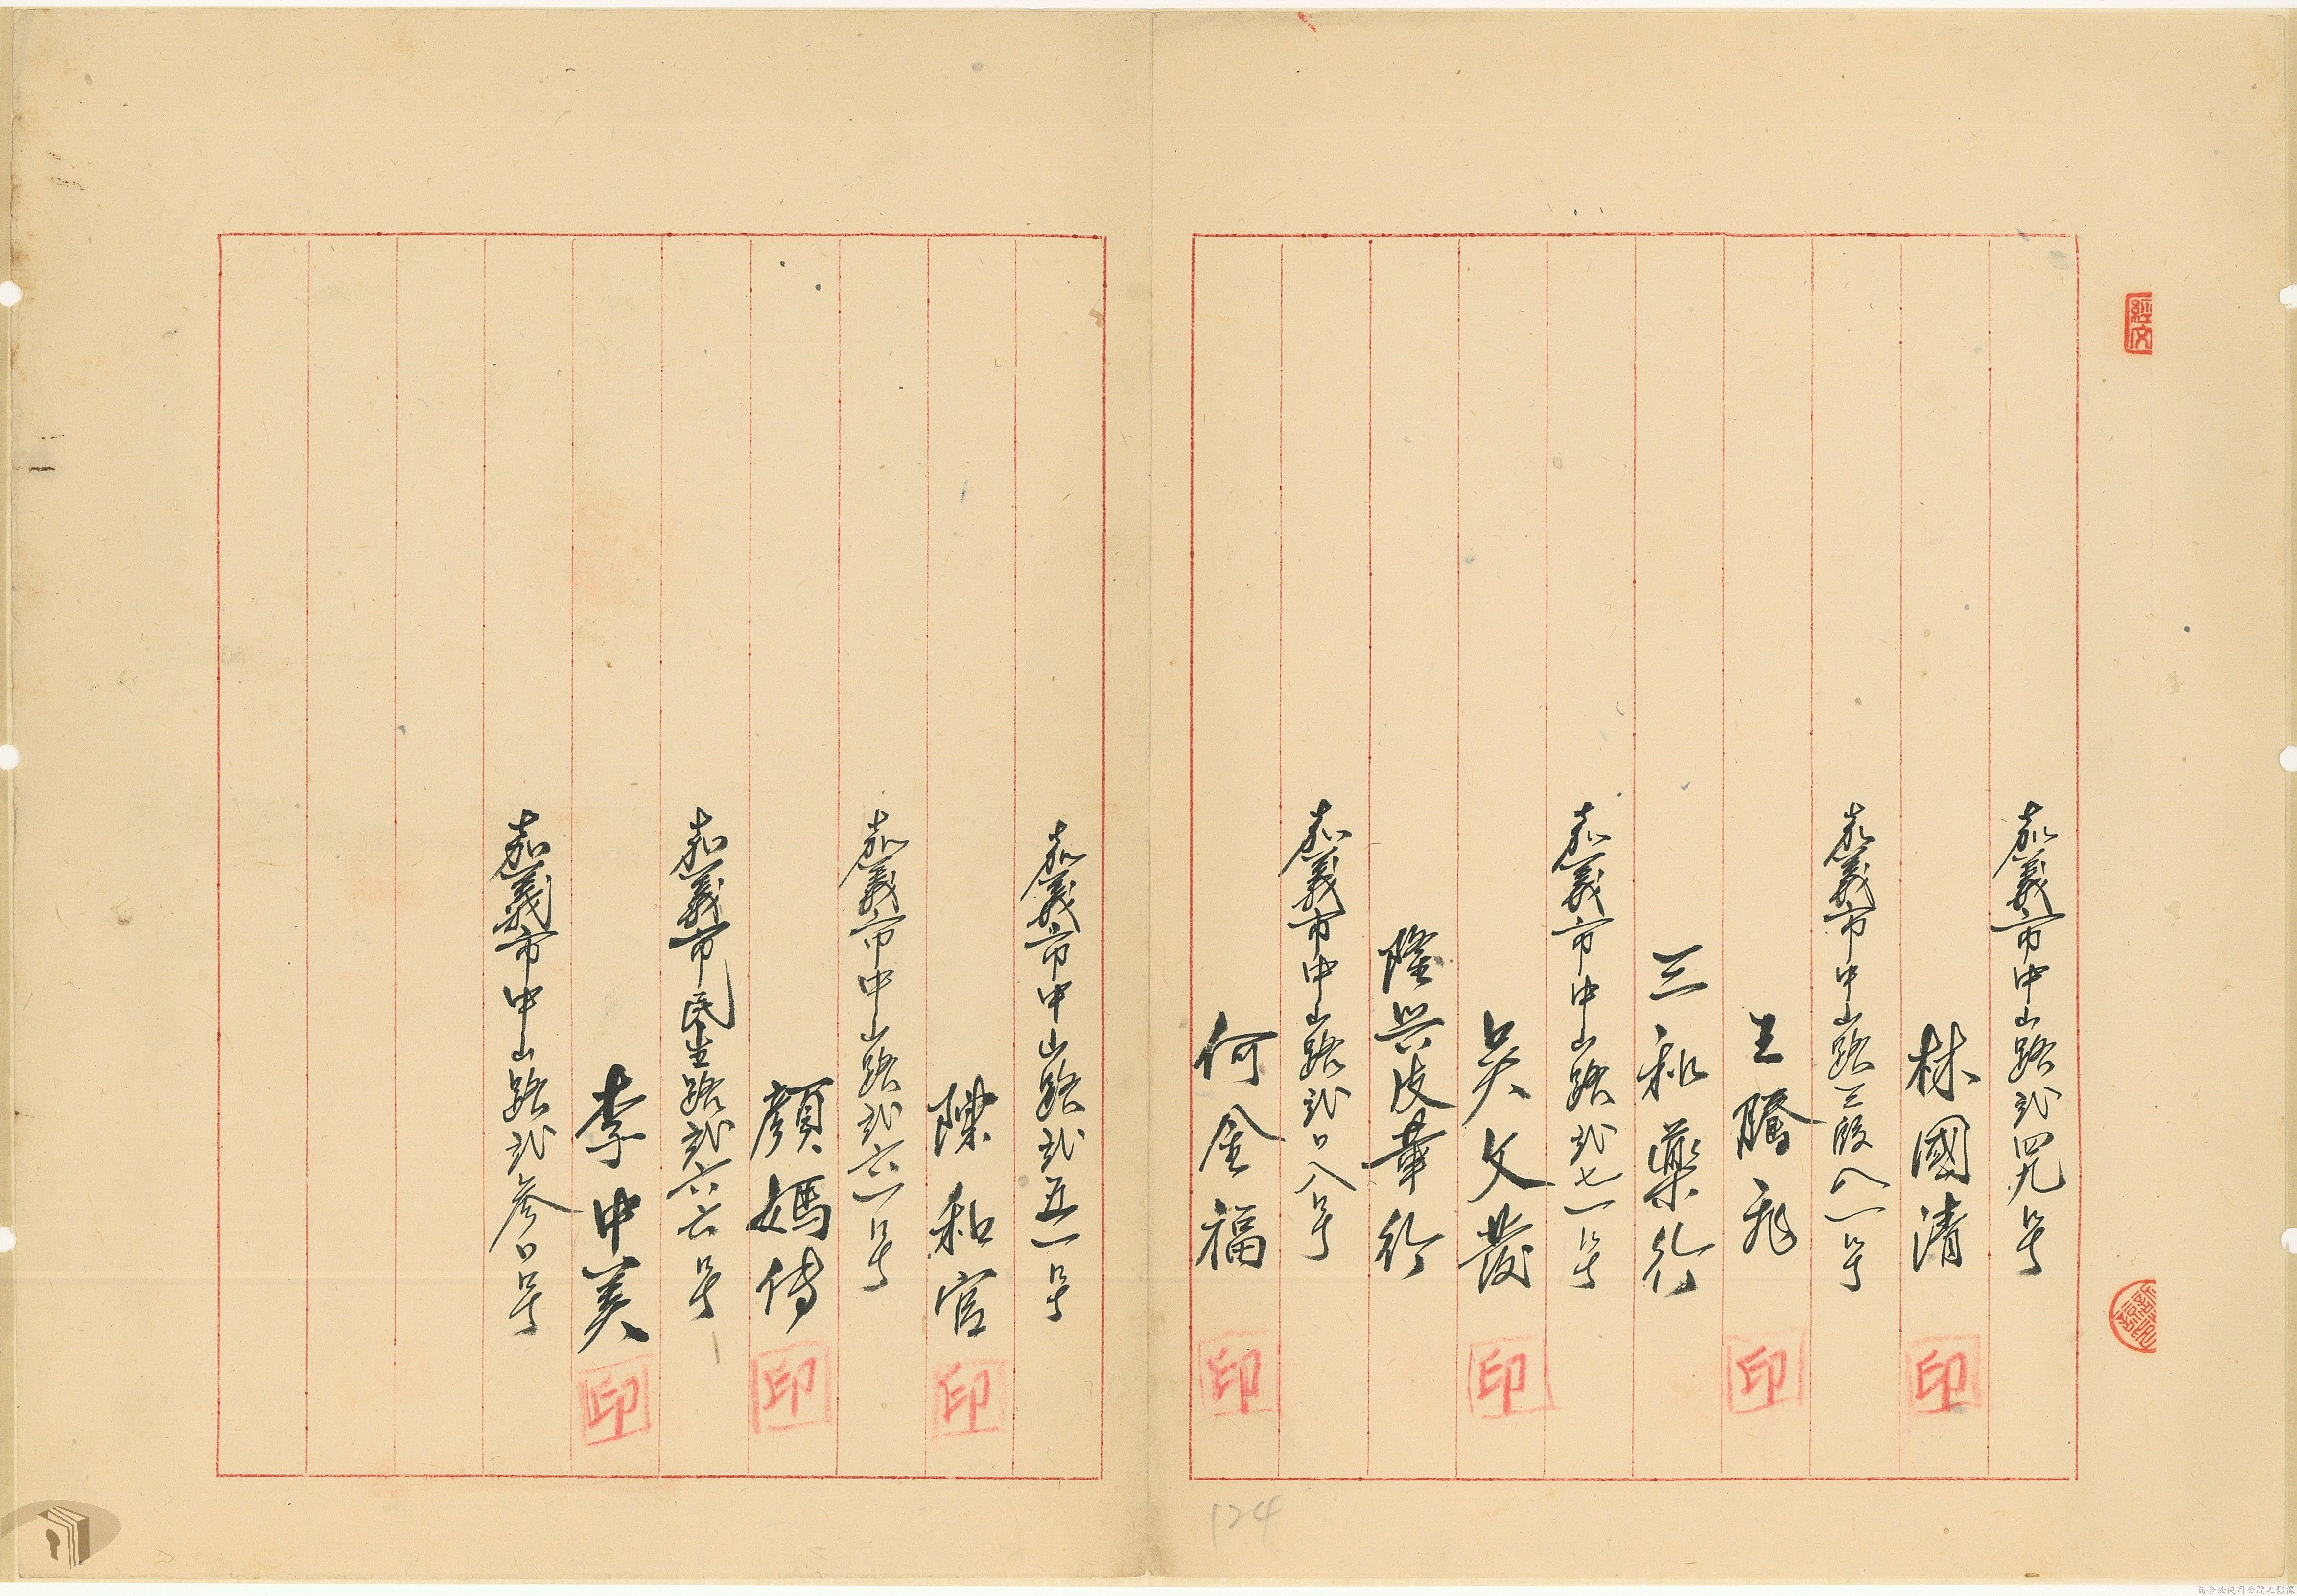 嘉義市中山路弍四九号
林國清
印
嘉義市中山路三段八一号
王騰飛
印
三和藥行
嘉義市中山路弍七一号
吳文發
印
隆興皮革行
嘉義市中山路弍口八号
何金福
印
嘉義市中山路弍五一号
陳和官
印
嘉義市中山路弍六一号
顏媽傳
印
嘉義市民生路弍六六号
李中美
印
嘉義市中山路弍参口号
124
請合法使用公開之影像